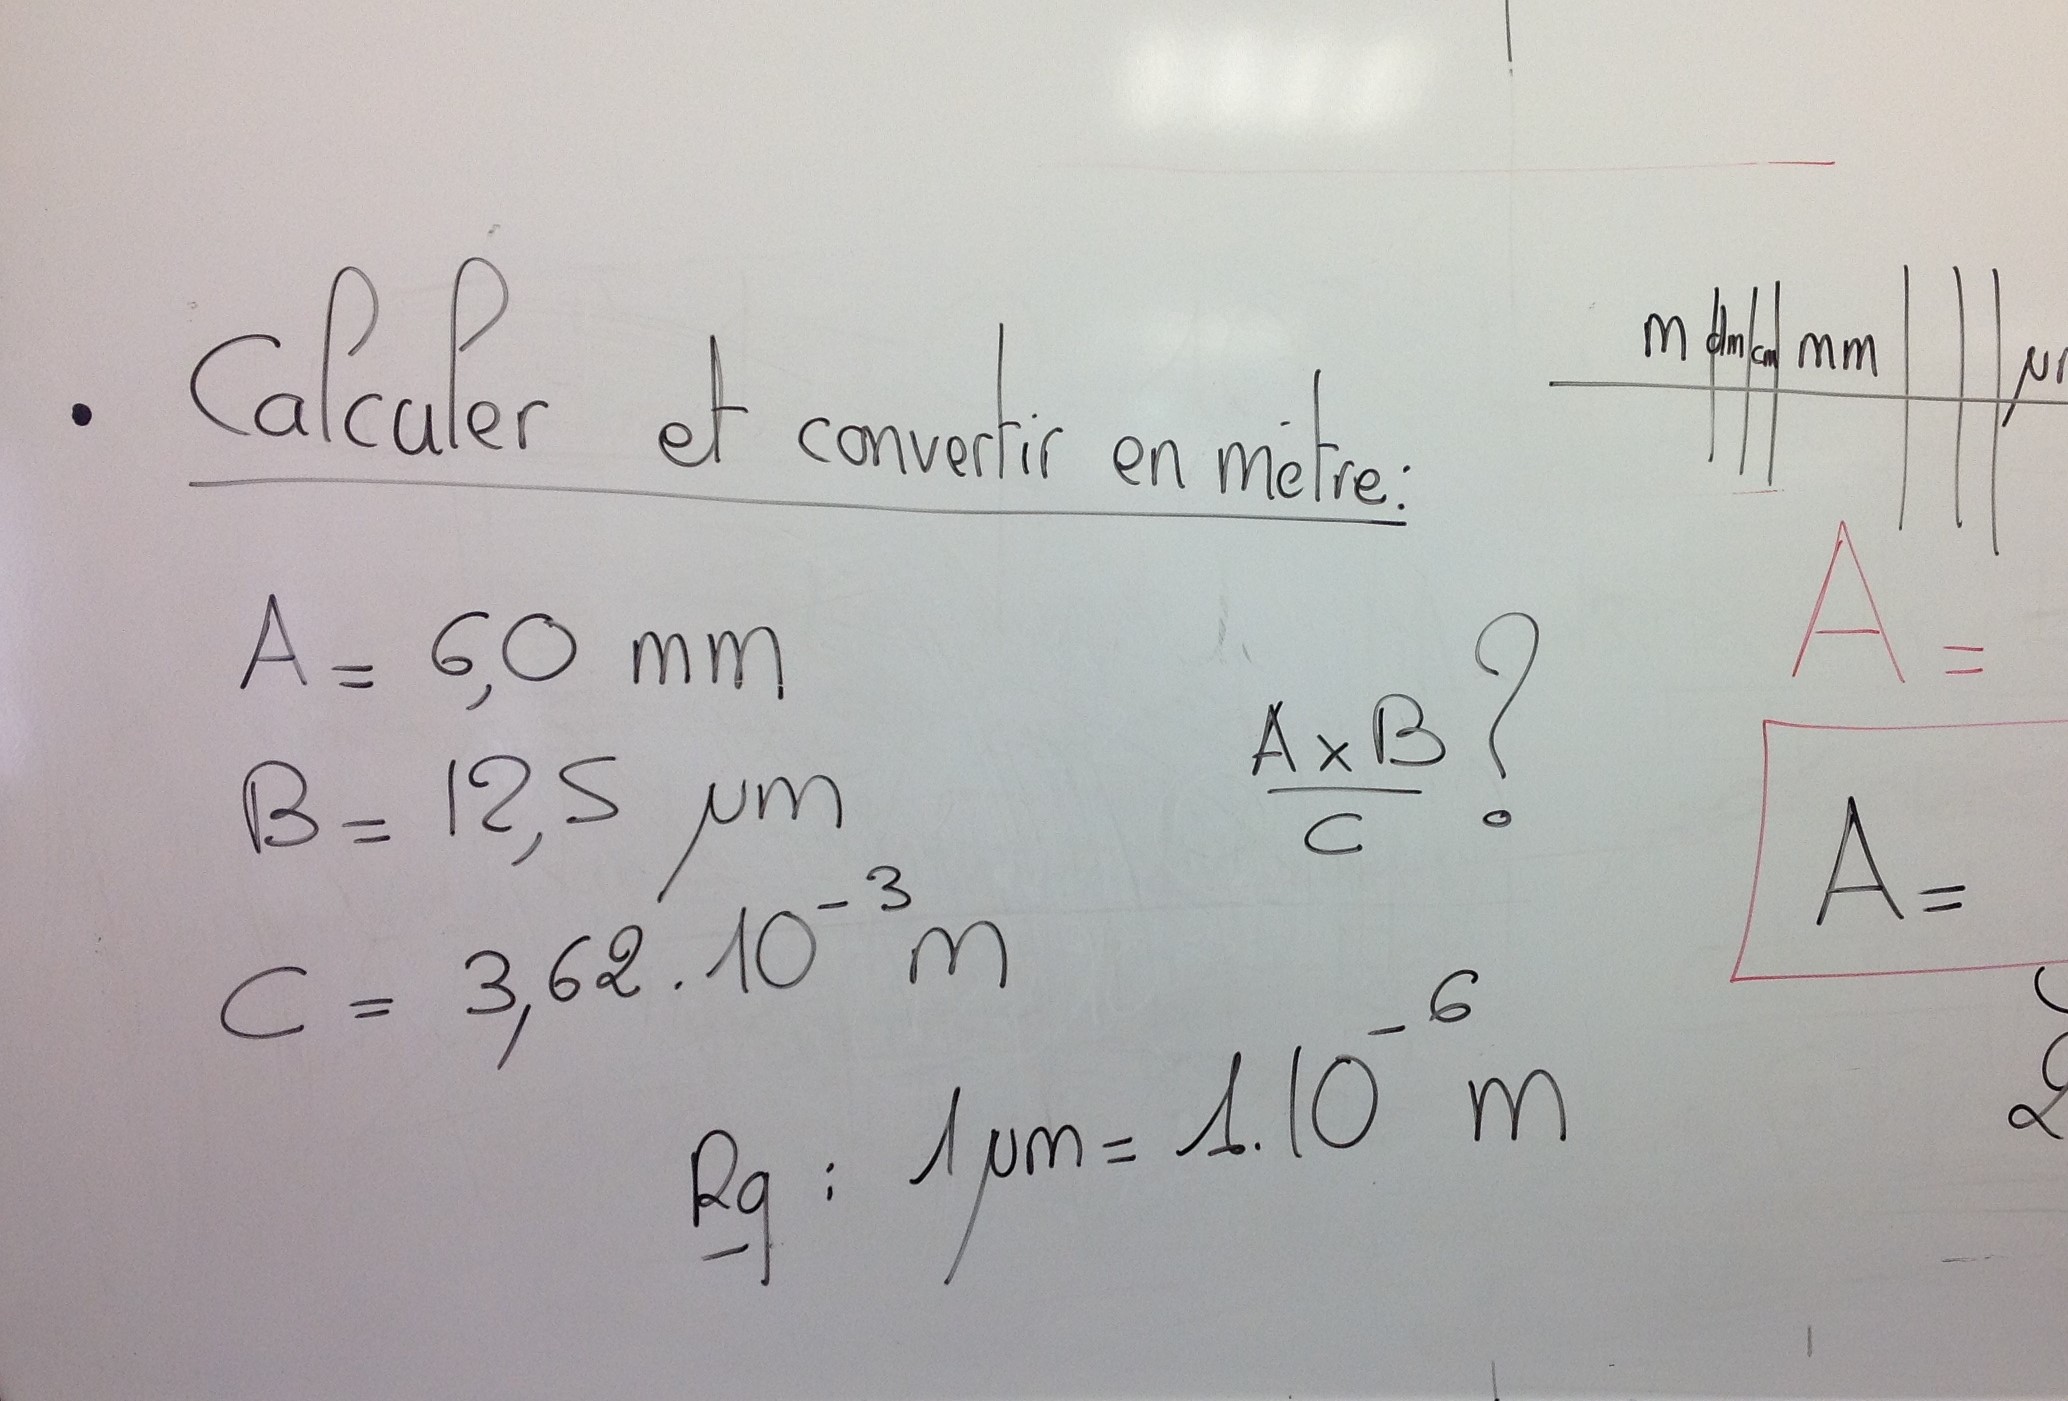 • Calculer et convertir en mètre:
A = 6,0 mm
B = 12,5 μm
C = 3,62 . 10⁻³ m
A x B
C
?
Rq : 1 μm = 1.10⁻⁶ m
m dm cm mm
A =
A =